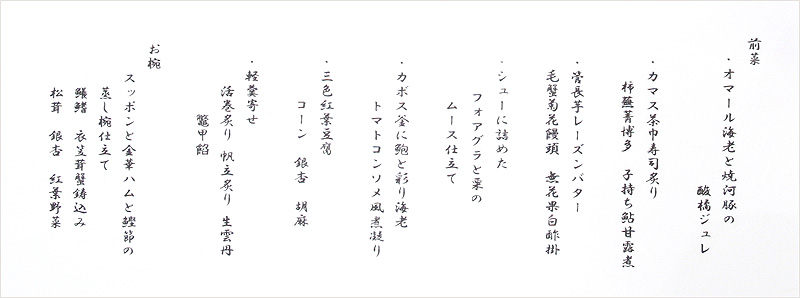 前菜
・オマール海老と焼河豚の
酸橘ジュレ
・カマス茶巾寿司炙り
柿蕪菁博多 子持ち鮎甘露煮
・管長芋レーズンバター
毛蟹菊花饅頭 無花果白酢掛
・シューに詰めた
フォアグラと栗の
ムース仕立て
・カボス釜に鮑と彩り海老
トマトコンソメ風煮凝り
・三色紅葉豆腐
コーン 銀杏 胡麻
・軽羹寄せ
活巻炙り 帆立炙り 生雲丹
鼈甲餡
お椀
スッポンと金華ハムと鰹節の
蒸し椀仕立て
鱶鰭 衣笠茸蟹鋳込み
松茸 銀杏 紅葉野菜